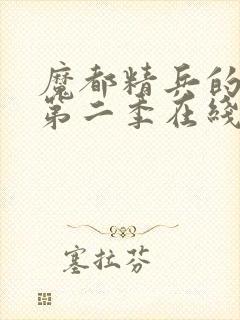 魔都精兵的
第二季在线
塞拉芬